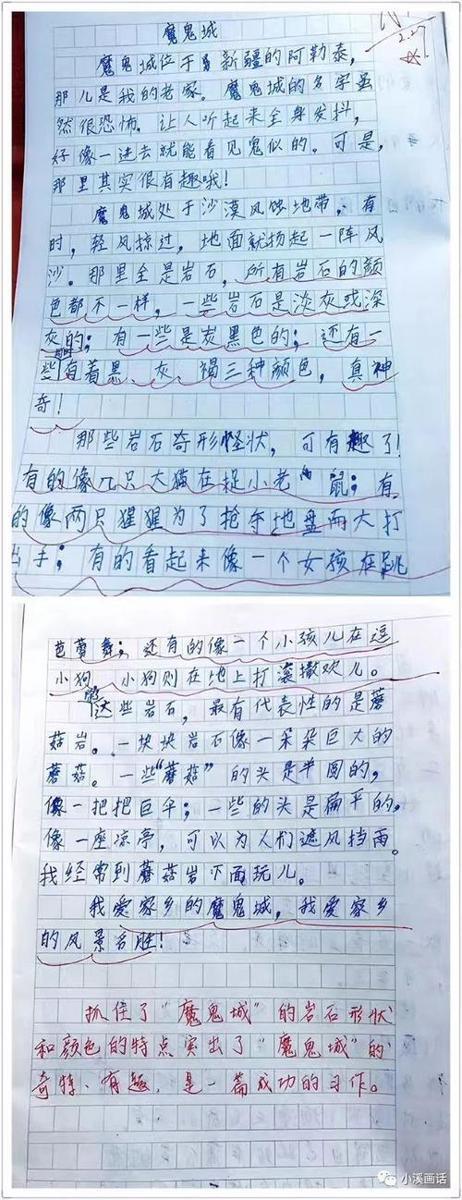 魔鬼城
2.27
魔鬼城位于新疆的阿勒泰，
那儿是我的老家。魔鬼城的名字虽
然很恐怖，让人听起来全身发抖，
好像一进去就能看见鬼似的。可是，
那里其实很有趣哦！
魔鬼城处于沙漠风蚀地带，有
时，轻风掠过，地面就扬起一阵风
沙。那里全是岩石，所有岩石的颜
色都不一样，一些岩石是淡灰或深
灰的；有一些是炭黑色的；还有一
些有着黑、灰、褐三种颜色，真神
奇！
那些岩石奇形怪状，可有趣了！
有的像几只大猫在捉小老鼠；有
的像两只猩猩为了抢夺地盘而大打
出手；有的看起来像一个女孩在跳
芭蕾舞；还有的像一个小孩儿在逗
小狗，小狗则在地上打滚撒欢儿。
这些岩石，最有代表性的是蘑
菇岩。一块块岩石像一朵朵巨大的
蘑菇。一些“蘑菇”的头是半圆的，
像一把把巨伞；一些的头是扁平的，
像一座凉亭，可以为人们遮风挡雨。
我经常到蘑菇岩下面玩儿。
我爱家乡的魔鬼城，我爱家乡
的风景名胜！
抓住了“魔鬼城”的岩石形状
和颜色的特点突出了“魔鬼城”的
奇特、有趣，是一篇成功的习作。
小溪画话